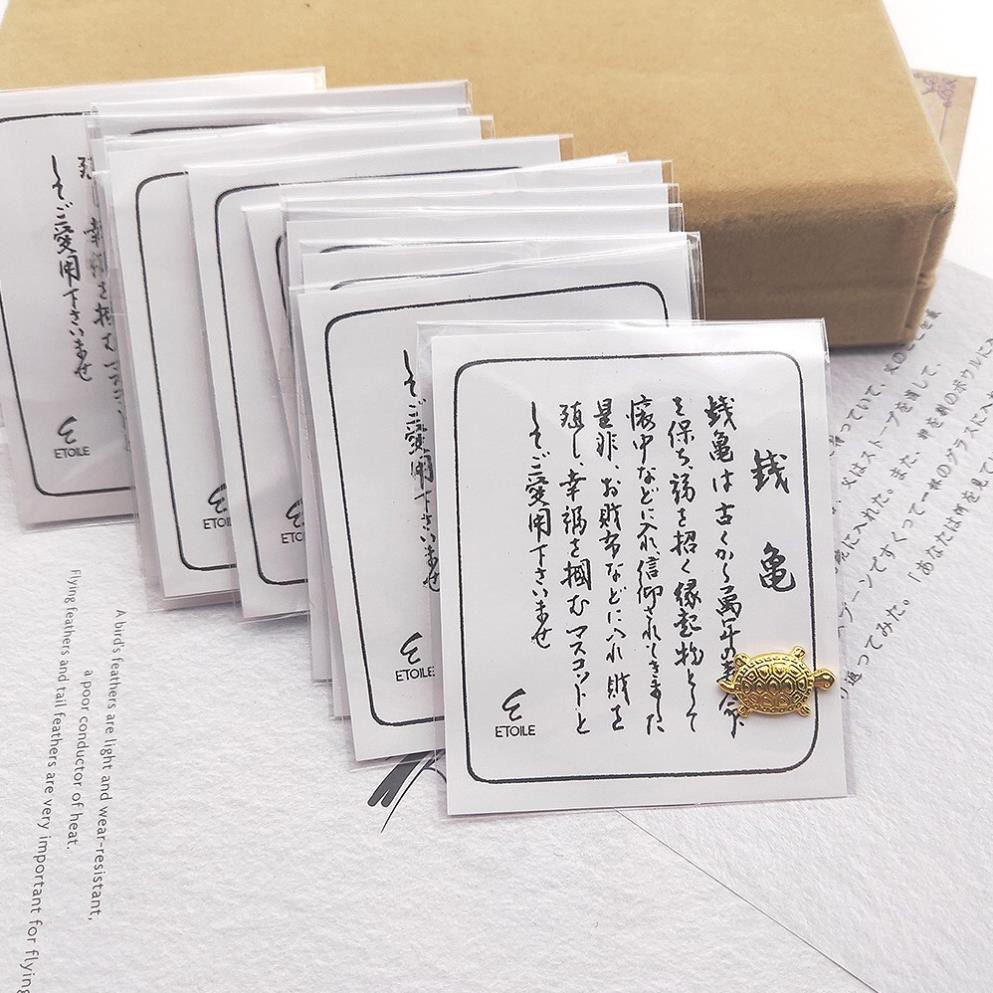 銭亀
銭亀は古くから萬年の寿命
を保ち、福を招く縁起物として
懐中などに入れ、信仰されてきました
是非、お財布などに入れ財を
殖し、幸福を掴むマスコットと
してご愛用下さいませ
ETOILE
してご愛用下さいませ
ETOILE
ETOILE
ETOILE
殖し、幸福を掴む
してご愛用下さいませ
ETOILE
A bird's feathers are light and wear-resistant,
a poor conductor of heat.
Flying feathers and tail feathers are very important for flying
父はストーブを消して、
に入れた。また、卵を別のボウルに入
プーンですくって一杯のグラスに入
り通ってみた。「あなたは何を見てい